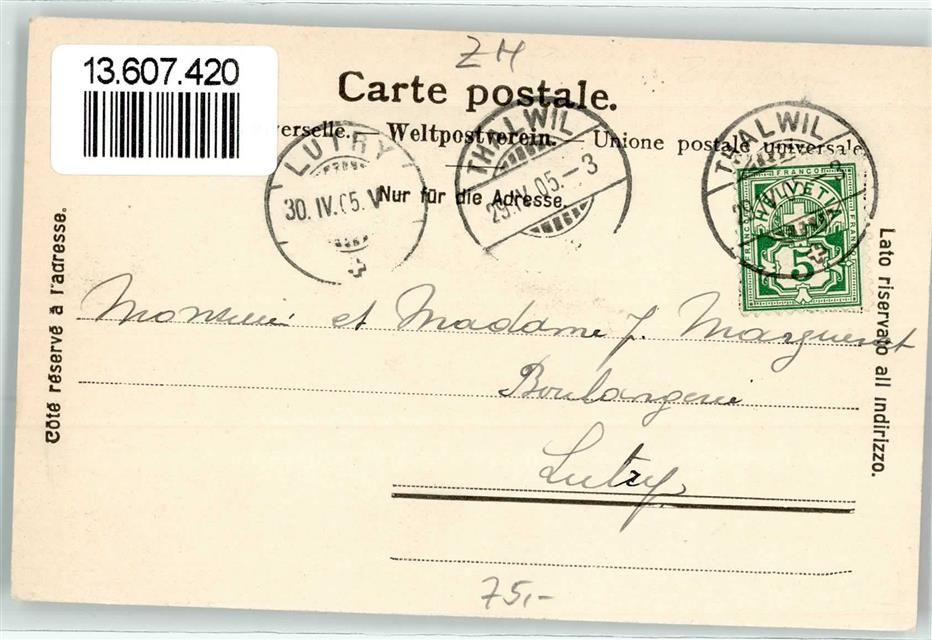 ZH
13.607.420
Carte postale.
verselle. — Weltpostverein. — Unione postale universale
Nur für die Adresse.
LUTRY
30.IV.05.V
THALWIL
29.IV.05.–3
THALWIL
29. 3
FRANCO
HELVETIA
FRANCO
FRANCO
5
Côté réservé à l'adresse.
Lato riservato all indirizzo.
Monsieur et Madame J. Margueret
Boulangerie
Lutry
75,-